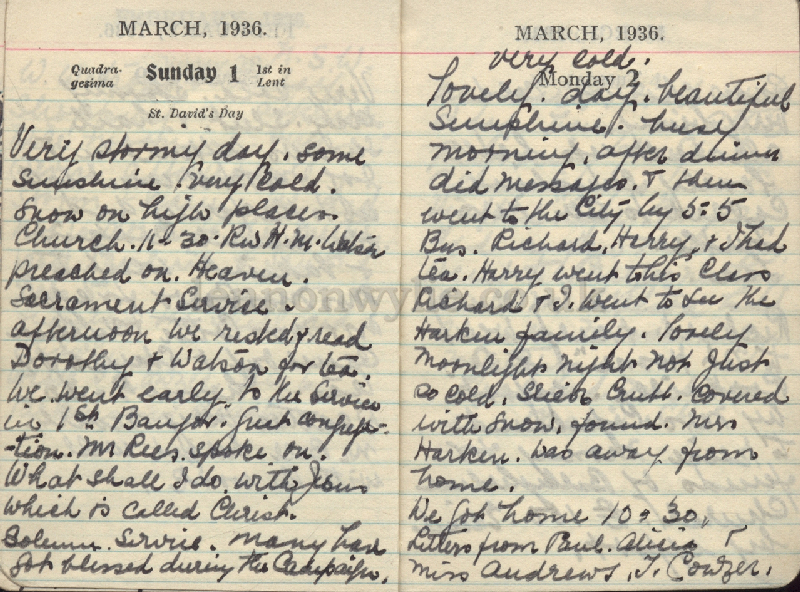 MARCH, 1936.
Quadra-gesima Sunday 1 1st in Lent
St. David's Day
Very stormy day. some
sunshine. very cold.
Snow on high places.
Church. 11-30. Rev H. M. Watson
preached on. Heaven.
Sacrament Service.
afternoon we rested & read
Dorothy & Watson for tea.
We went early to the Service
in 1st Bangor. Great congrega-
-tion. Mr Rees. spoke on.
What shall I do with Jesus
which is called Christ.
Solemn. Service. many have
got blessed during the Campaign.
MARCH, 1936.
very cold.
Monday 2
lovely. day. beautiful
Sunshine. busy
morning, after dinner
did messages. & then
went to the City by 5-5
Bus. Richard, Harry, & I had
tea. Harry went to his Class
Richard & I. went to see the
Harken family. lovely
Moonlight night not just
so cold. Slieve Croob. covered
with snow. found. Mrs
Harken. was away from
home.
We got home 10-30.
Letters from Paul. Alicia &
Miss Andrews, T. Cowzer.